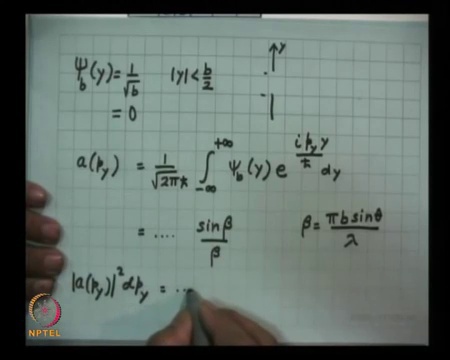 Ψ_b(y) = 1/√b |y| < b/2
= 0
y
a(p_y) = 1/√(2πħ) ∫_{-∞}^{+∞} Ψ_b(y) e^{i p_y y/ħ} dy
= .... sin β/β β = πb sinθ/λ
|a(p_y)|² dp_y = ..
NPTEL